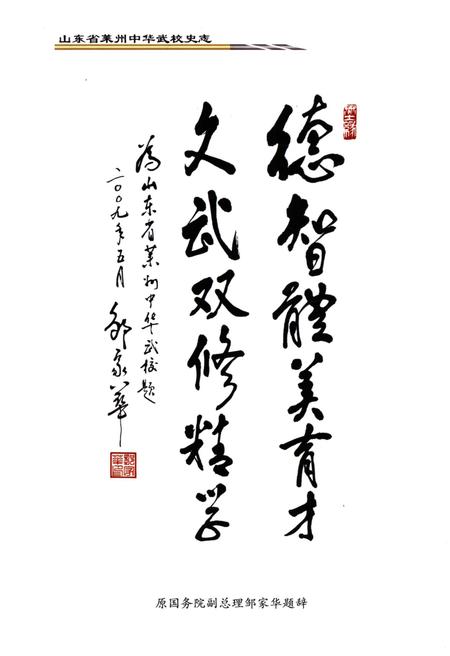 山东省莱州中华武校史志
德智體美育才
文武双修精学
为山东省莱州中华武校题
二〇〇九年五月 邹家华
原国务院副总理邹家华题辞